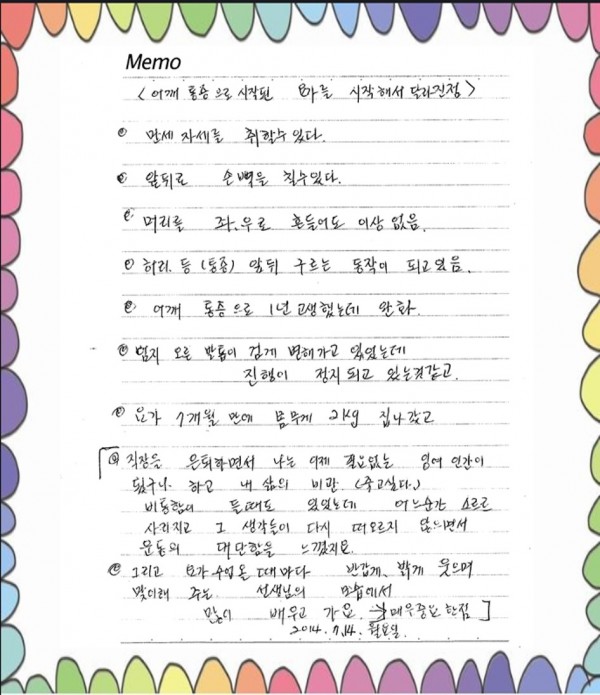 Memo
< 어깨 통증으로 시작된 요가를 시작해서 달라진점 >
만세 자세를 취할수 있다.
앞뒤로 손벽을 칠수있다.
머리를 좌.우로 흔들어도 이상 없음.
허리. 등 (통증) 앞뒤 구르는 동작이 되고 있음.
어깨 통증으로 1년 고생했는데 완화.
엄지 오른 발톱이 검게 변해가고 있었는데
진행이 정지 되고 있는것같고.
요가 7개월 만에 몸무게 2kg 집나갔고
직장을 은퇴하면서 나는 이제 필요없는 잉여 인간이
됬구나 하고 내 삶의 비관 (죽고싶다.)
비통함이 들때도 있었는데 어느순간 스르르
사라지고 그 생각들이 다시 떠오르지 않으면서
운동의 대단함을 느꼈지요.
그리고 요가 수업 올 때마다 반갑게. 밝게 웃으며
맞이해 주는 선생님의 모습에서
많이 배우고 가요. → 매우중요한점 ]
2014. 7.14. 월요일.